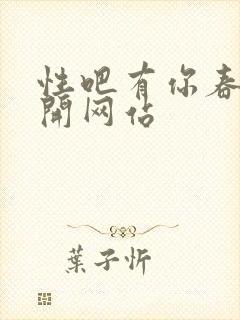 性吧有你春
開网佔
葉子忻